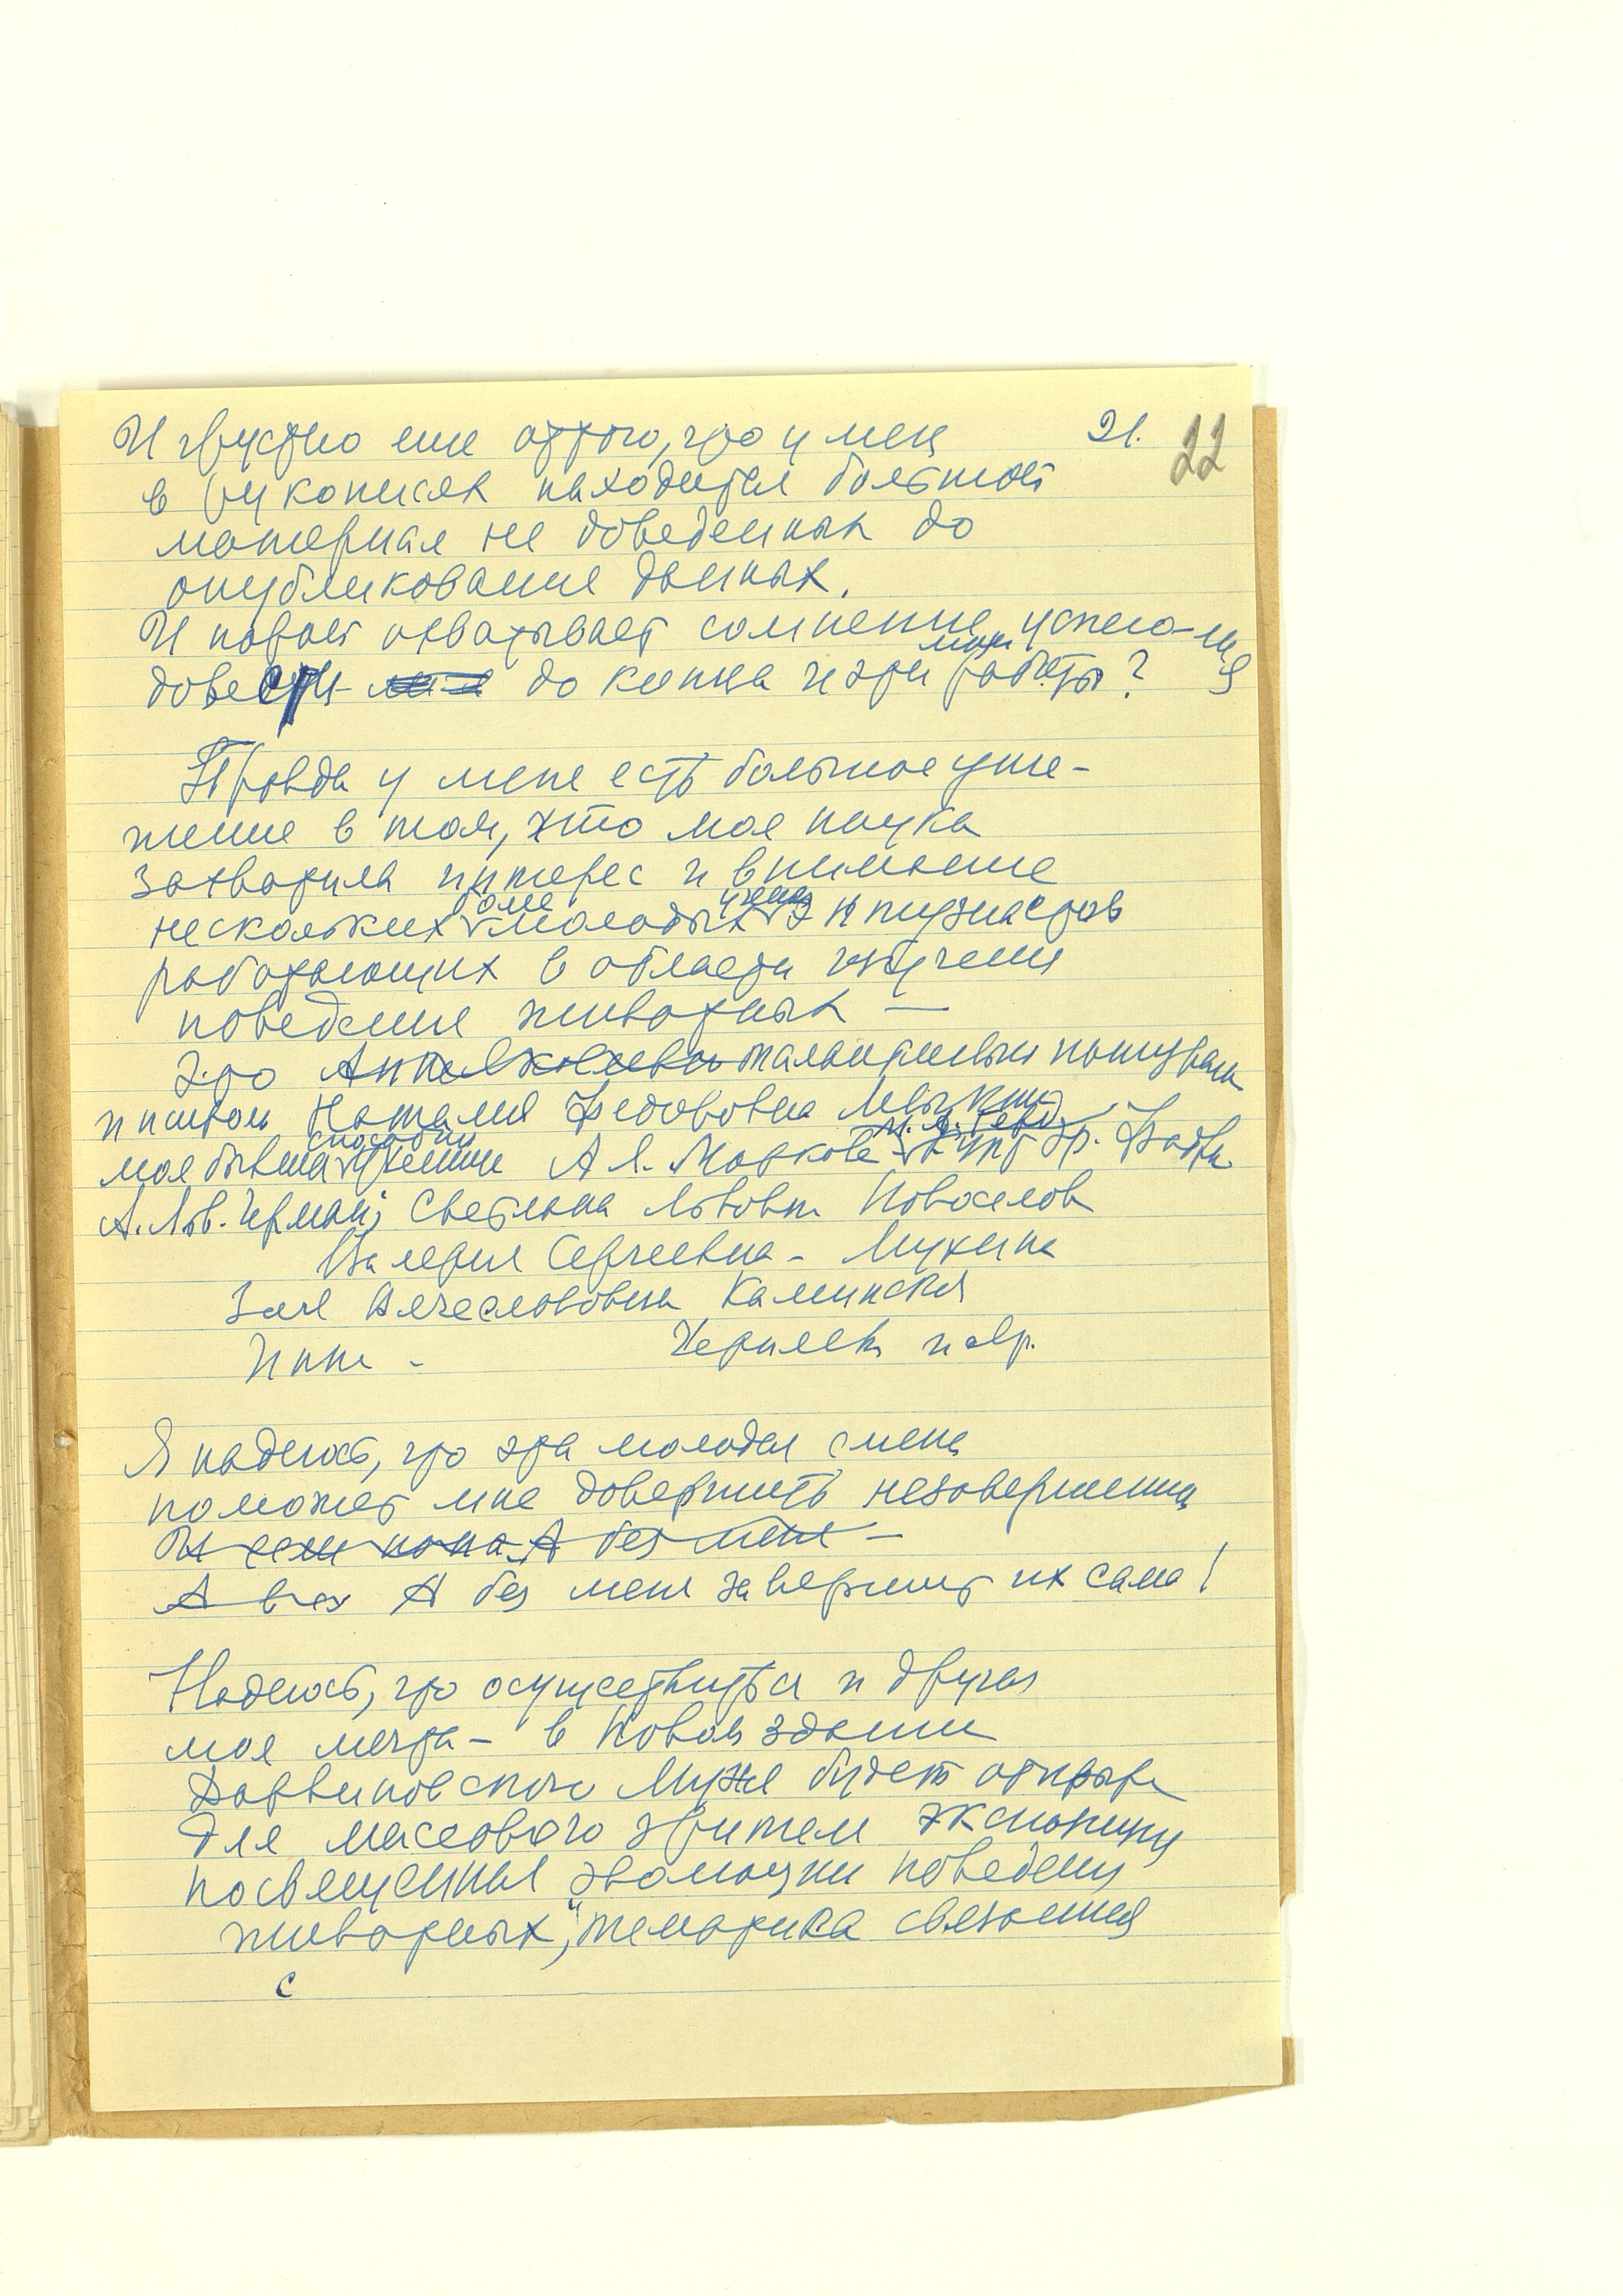 И грустно еще оттого, что у меня 21. 22
в рукописях находится большой
материал не доведенных до
опубликования данных.
И порой охватывает сомнение, успею-ли я
довести до конца и эти мои работы?
Правда у меня есть большое уте-
шение в том, что моя наука
захватила интерес и внимание
нескольких более молодых ученых энтузиастов
работающих в области изучения
поведения животных —
Это талантливый натуралист
и Наталия Федоровна
мои бывша способн А. Я. Маркова
А. Льв. Черман; Светлана Львовна Новоселов
Валерия Сергеевна - Мухина
Зоя Вячеславовна Каминская
Нина - и др.
Я надеюсь, что эта молодая смена
поможет мне довершить незавершенн
А без меня
А всех А без меня завершит их сама!
Надеюсь, что осуществиться и другая
моя мечта - в Новом здании
Дарвиновского Музея будет открыта
для массового зрителя экспозиция
посвященная "эволюции поведения
животных", тематика связанная
с